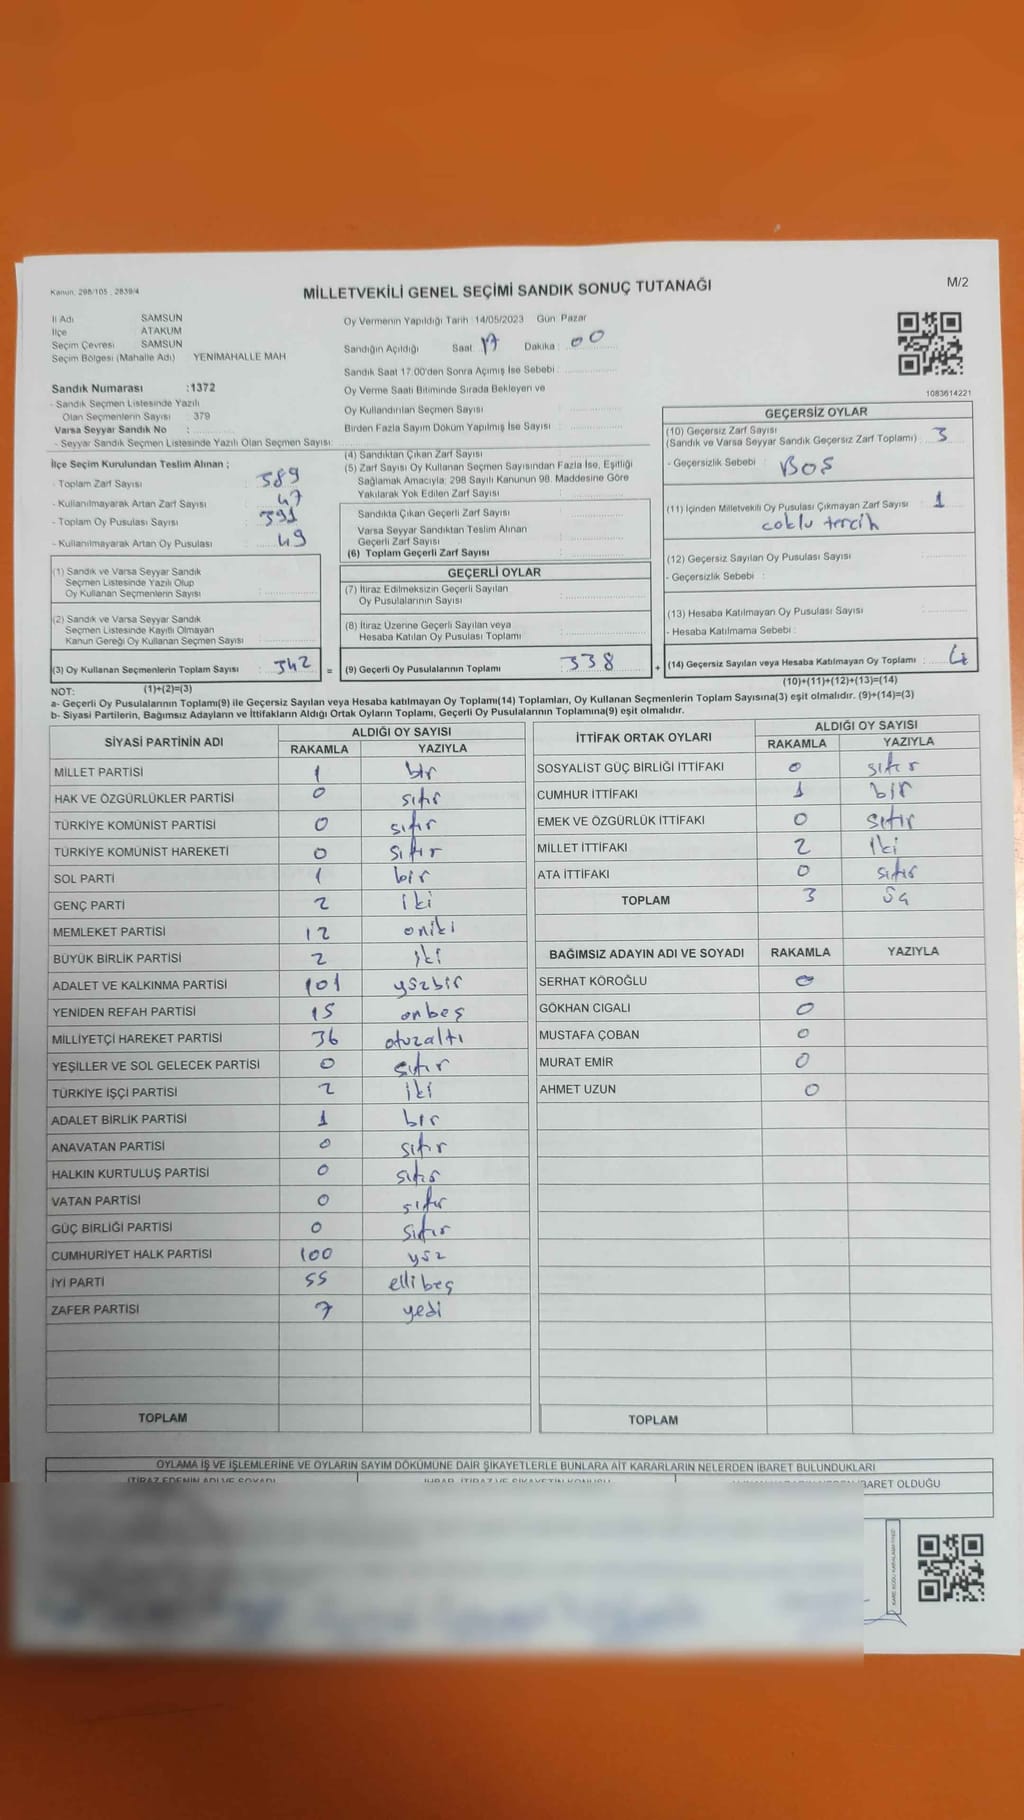 Kanun: 298/105 , 2839/4
MİLLETVEKİLİ GENEL SEÇİMİ SANDIK SONUÇ TUTANAĞI
M/2
İl Adı SAMSUN
İlçe ATAKUM
Seçim Çevresi SAMSUN
Seçim Bölgesi (Mahalle Adı) YENİMAHALLE MAH
Sandık Numarası :1372
- Sandık Seçmen Listesinde Yazılı
Olan Seçmenlerin Sayısı : 379
Varsa Seyyar Sandık No :
- Seyyar Sandık Seçmen Listesinde Yazılı Olan Seçmen Sayısı:
Oy Vermenin Yapıldığı Tarih 14/05/2023 Gün: Pazar
Sandığın Açıldığı Saat 17 Dakika : 00
Sandık Saat 17.00'den Sonra Açımış İse Sebebi :
Oy Verme Saati Bitiminde Sırada Bekleyen ve
Oy Kullandırılan Seçmen Sayısı
Birden Fazla Sayım Döküm Yapılmış İse Sayısı :
1083614221
İlçe Seçim Kurulundan Teslim Alınan ;
- Toplam Zarf Sayısı : 389
- Kullanılmayarak Artan Zarf Sayısı : 47
- Toplam Oy Pusulası Sayısı : 391
- Kullanılmayarak Artan Oy Pusulası : 49
(1) Sandık ve Varsa Seyyar Sandık
Seçmen Listesinde Yazılı Olup
Oy Kullanan Seçmenlerin Sayısı :
(2) Sandık ve Varsa Seyyar Sandık
Seçmen Listesinde Kayıtlı Olmayan
Kanun Gereği Oy Kullanan Seçmen Sayısı :
(3) Oy Kullanan Seçmenlerin Toplam Sayısı : 342 =
(4) Sandıktan Çıkan Zarf Sayısı :
(5) Zarf Sayısı Oy Kullanan Seçmen Sayısından Fazla İse, Eşitliği
Sağlamak Amacıyla; 298 Sayılı Kanunun 98. Maddesine Göre
Yakılarak Yok Edilen Zarf Sayısı :
Sandıkta Çıkan Geçerli Zarf Sayısı :
Varsa Seyyar Sandıktan Teslim Alınan
Geçerli Zarf Sayısı :
(6) Toplam Geçerli Zarf Sayısı :
GEÇERLİ OYLAR
(7) İtiraz Edilmeksizin Geçerli Sayılan
Oy Pusulalarının Sayısı :
(8) İtiraz Üzerine Geçerli Sayılan veya
Hesaba Katılan Oy Pusulası Toplamı :
(9) Geçerli Oy Pusulalarının Toplamı : 338 +
GEÇERSİZ OYLAR
(10) Geçersiz Zarf Sayısı : 3
(Sandık ve Varsa Seyyar Sandık Geçersiz Zarf Toplamı)
- Geçersizlik Sebebi : BOŞ
(11) İçinden Milletvekili Oy Pusulası Çıkmayan Zarf Sayısı : 1
coklu tercih
(12) Geçersiz Sayılan Oy Pusulası Sayısı :
- Geçersizlik Sebebi :
(13) Hesaba Katılmayan Oy Pusulası Sayısı :
- Hesaba Katılmama Sebebi :
(14) Geçersiz Sayılan veya Hesaba Katılmayan Oy Toplamı : 4
NOT: (1)+(2)=(3)
(10)+(11)+(12)+(13)=(14)
a- Geçerli Oy Pusulalarının Toplamı(9) ile Geçersiz Sayılan veya Hesaba katılmayan Oy Toplamı(14) Toplamları, Oy Kullanan Seçmenlerin Toplam Sayısına(3) eşit olmalıdır. (9)+(14)=(3)
b- Siyasi Partilerin, Bağımsız Adayların ve İttifakların Aldığı Ortak Oyların Toplamı, Geçerli Oy Pusulalarının Toplamına(9) eşit olmalıdır.
SİYASİ PARTİNİN ADI ALDIĞI OY SAYISI
RAKAMLA YAZIYLA
MİLLET PARTİSİ 1 bir
HAK VE ÖZGÜRLÜKLER PARTİSİ 0 sıfır
TÜRKİYE KOMÜNİST PARTİSİ 0 sıfır
TÜRKİYE KOMÜNİST HAREKETİ 0 sıfır
SOL PARTİ 1 bir
GENÇ PARTİ 2 iki
MEMLEKET PARTİSİ 12 oniki
BÜYÜK BİRLİK PARTİSİ 2 iki
ADALET VE KALKINMA PARTİSİ 101 yüzbir
YENİDEN REFAH PARTİSİ 15 onbeş
MİLLİYETÇİ HAREKET PARTİSİ 36 otuzaltı
YEŞİLLER VE SOL GELECEK PARTİSİ 0 sıfır
TÜRKİYE İŞÇİ PARTİSİ 2 iki
ADALET BİRLİK PARTİSİ 1 bir
ANAVATAN PARTİSİ 0 sıfır
HALKIN KURTULUŞ PARTİSİ 0 sıfır
VATAN PARTİSİ 0 sıfır
GÜÇ BİRLİĞİ PARTİSİ 0 sıfır
CUMHURİYET HALK PARTİSİ 100 yüz
İYİ PARTİ 55 ellibeş
ZAFER PARTİSİ 7 yedi
TOPLAM
İTTİFAK ORTAK OYLARI ALDIĞI OY SAYISI
RAKAMLA YAZIYLA
SOSYALİST GÜÇ BİRLİĞİ İTTİFAKI 0 sıfır
CUMHUR İTTİFAKI 1 bir
EMEK VE ÖZGÜRLÜK İTTİFAKI 0 sıfır
MİLLET İTTİFAKI 2 iki
ATA İTTİFAKI 0 sıfır
TOPLAM 3 üç
BAĞIMSIZ ADAYIN ADI VE SOYADI RAKAMLA YAZIYLA
SERHAT KÖROĞLU 0
GÖKHAN CIGALI 0
MUSTAFA ÇOBAN 0
MURAT EMİR 0
AHMET UZUN 0
TOPLAM
OYLAMA İŞ VE İŞLEMLERİNE VE OYLARIN SAYIM DÖKÜMÜNE DAİR ŞİKAYETLERLE BUNLARA AİT KARARLARIN NELERDEN İBARET BULUNDUKLARI
İTİRAZ EDENİN ADI VE SOYADI İHBAR, İTİRAZ VE ŞİKAYETİN KONUSU İBARET OLDUĞU